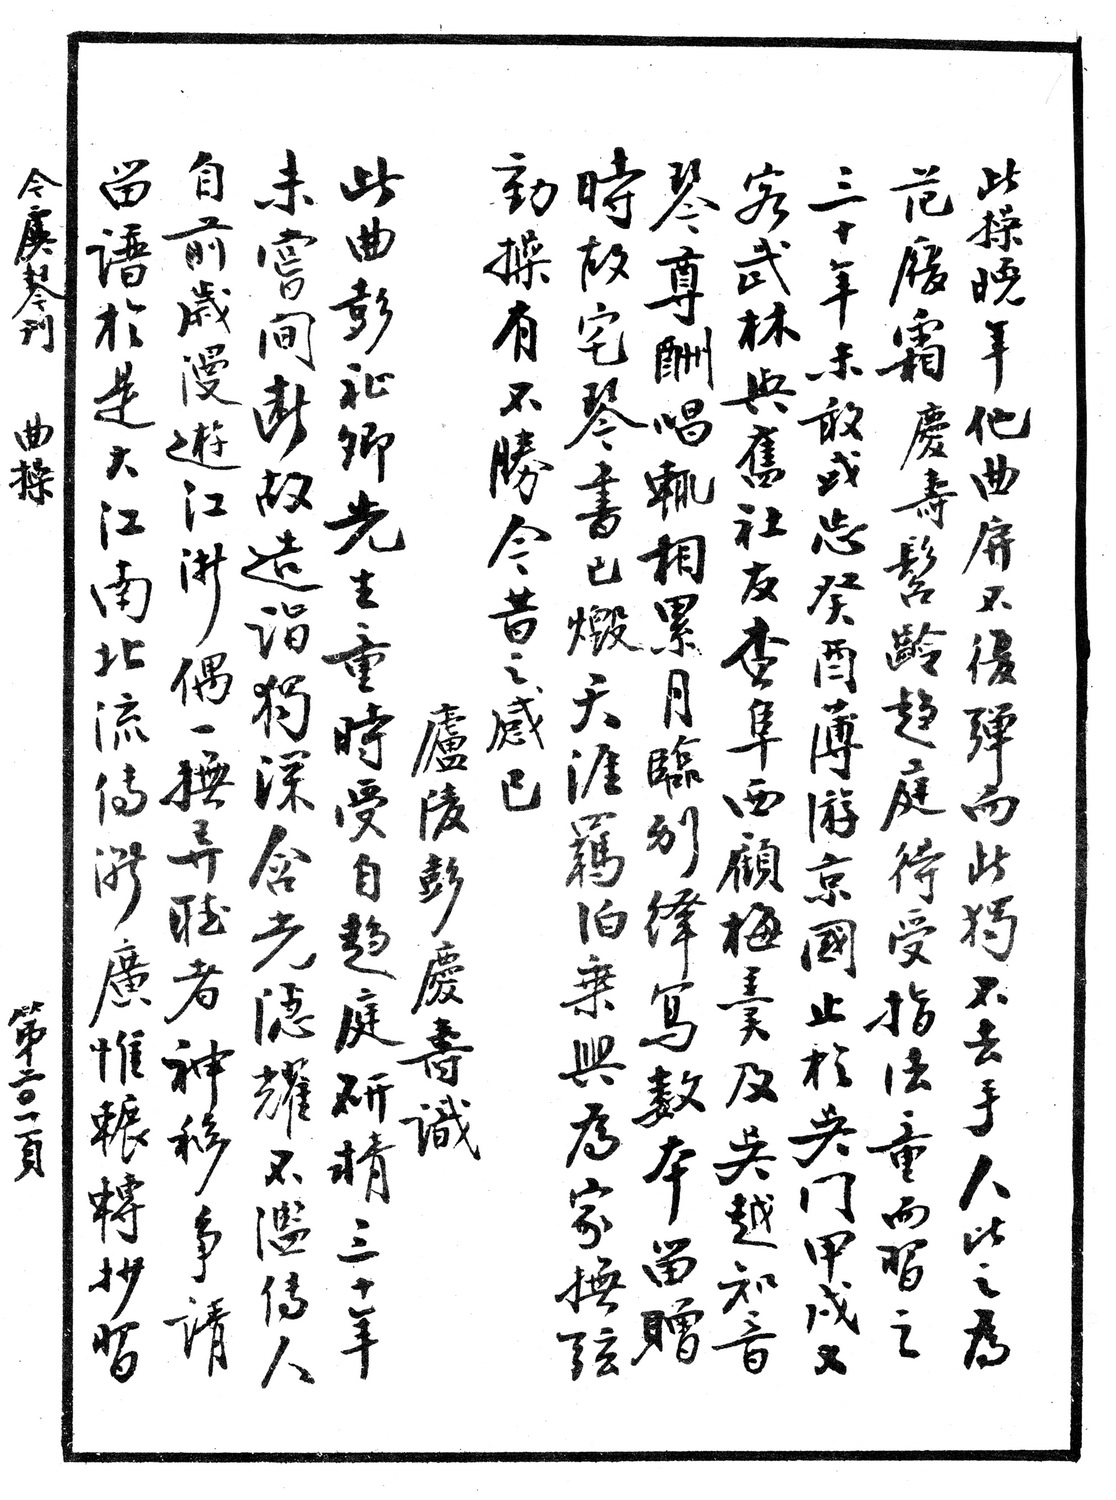 此操晚年他曲屏不復彈而此獨不去手人比之為
范履霜 慶壽髫齡趨庭待受指法童而習之
三十年未敢或忘癸酉薄游京國止於吳門甲戌又
客武林與舊社友查阜西顧梅羹及吳越知音
琴尊酬唱輒相累月臨別繹寫數本留贈
時故宅琴書已燬天涯羈泊乘興為家撫弦
動操有不勝今昔之感已
廬陵彭慶壽識
此曲彭祉卿先生童時受自趨庭研精三十年
未嘗間斷故造詣獨深含光隱耀不濫傳人
自前歲漫遊江浙偶一撫弄聽者神移爭請
留譜於是大江南北流傳漸廣惟輾轉抄習
今虞琴刊 曲操 第二〇一頁